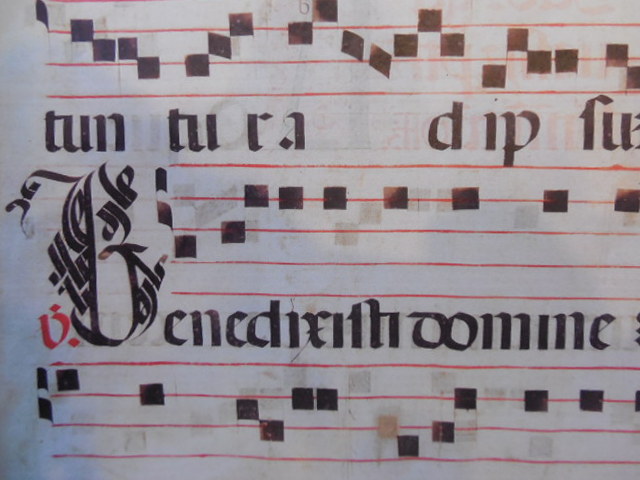 tun tu ra dip sux
℣. Benedixisti domine